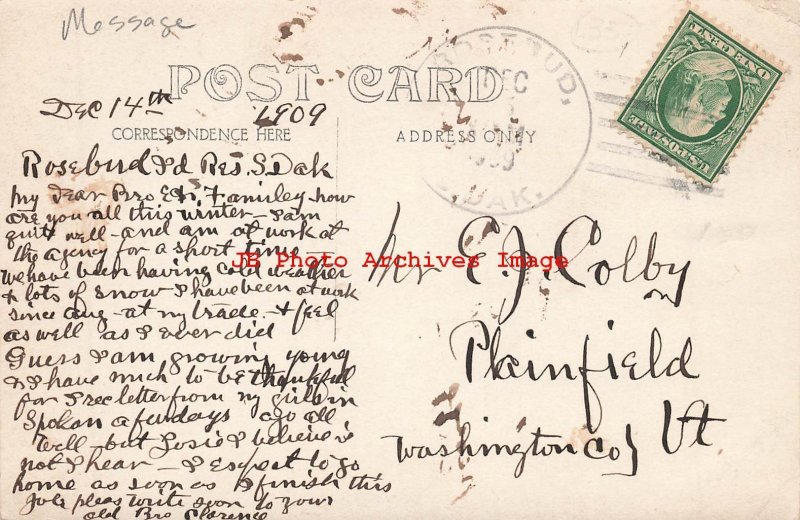 Message
POST CARD
Dec 14th 1909
CORRESPONDENCE HERE
ADDRESS ONLY
ROSEBUD,
DEC
1909
S. DAK.
U.S. POSTAGE
Rosebud Id Res. S. Dak
My Dear Bro E & Familey how
are you all this winter - I am
quit well - and am at work at
the agency for a short time -
we have been having cold weather
& lots of snow I have been at work
since aug - at my trade - & feel
as well as I ever did
Guess I am growing young
& I have much to be thankful
for I rec letter from my girls in
Spokan a few days ago all
well - but Josie I believe is
not I hear - I expect to go
home as soon as I finish this
job pleas write soon to your
old Bro Clarence
JB Photo Archives Image
Mr E J Colby
Plainfield
Washington Co Vt